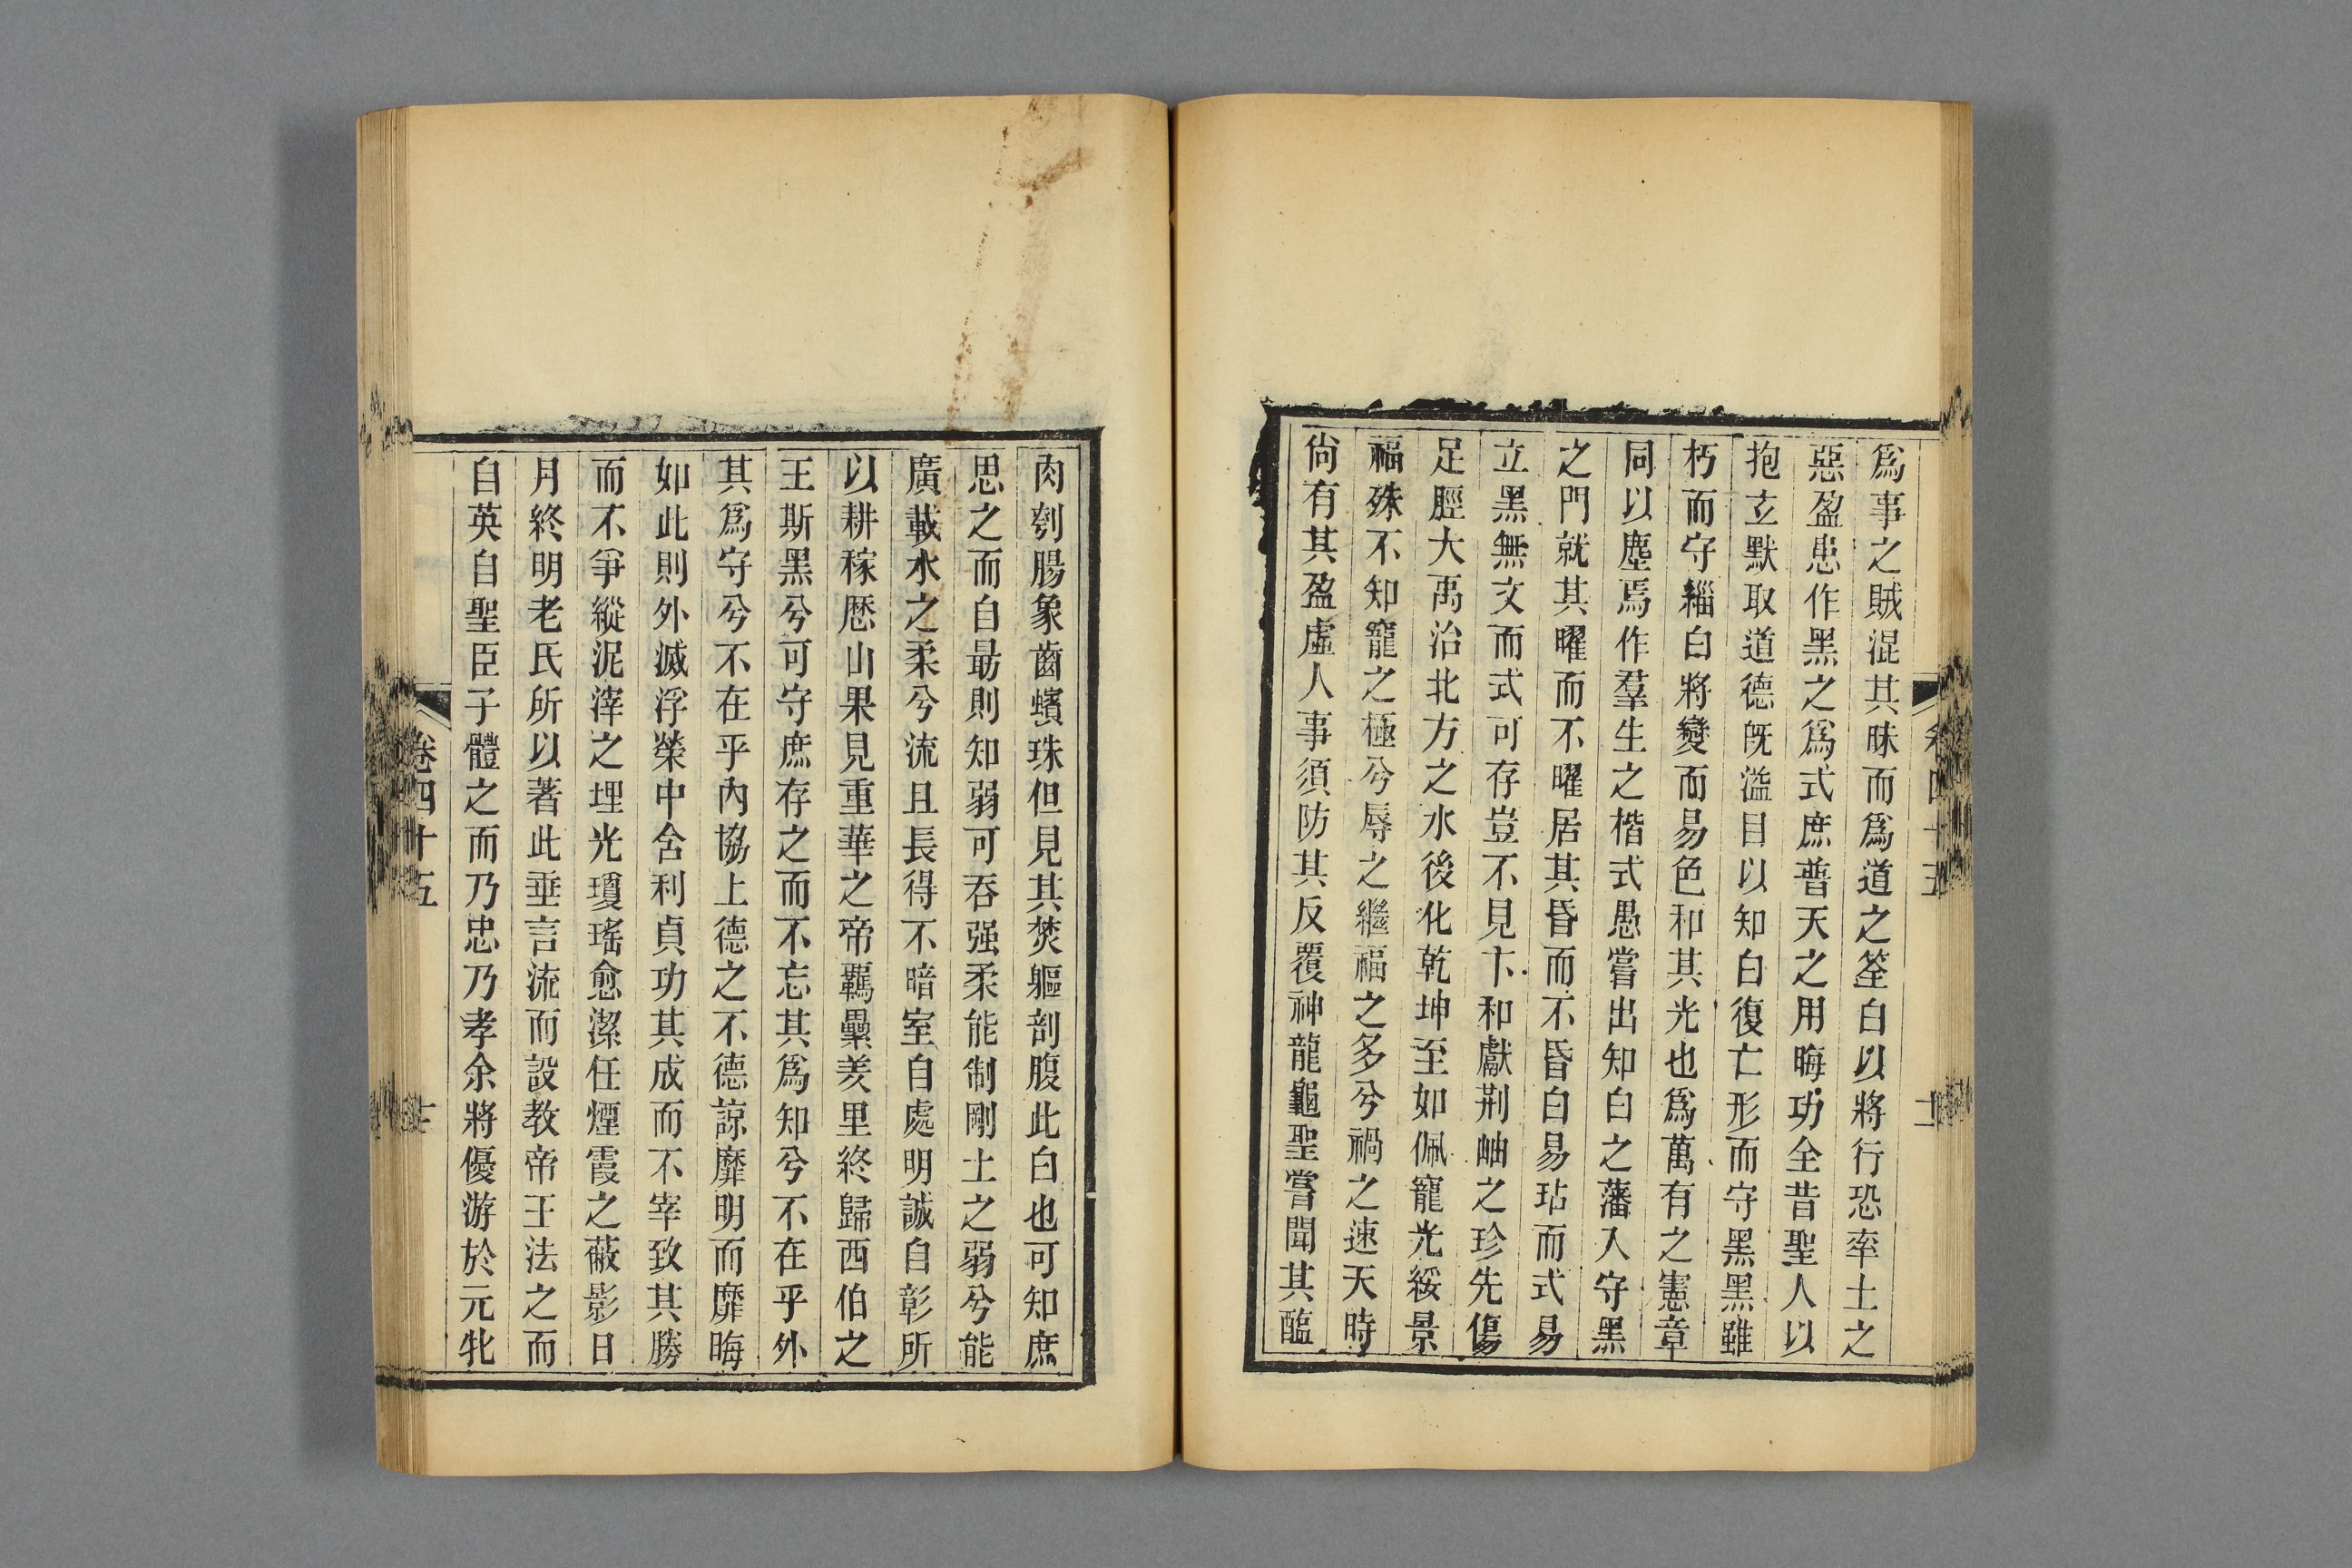 爲事之賊混其昧而爲道之筌白以將行恐率土之
惡盈患作黑之爲式庶普天之用晦功全昔聖人以
抱玄默取道德旣溢目以知白復亡形而守黑黑雖
朽而守緇白將變而易色和其光也爲萬有之憲章
同以塵焉作羣生之楷式愚嘗出知白之藩入守黑
之門就其曜而不曜居其昏而不昏白易玷而式易
立黑無文而式可存豈不見卞和獻荆岫之珍先傷
足脛大禹治北方之水後化乾坤至如佩寵光綏景
福殊不知寵之極兮辱之繼福之多兮禍之速天時
尙有其盈虛人事須防其反覆神龍龜聖嘗聞其醢
肉刳腸象齒蠙珠但見其焚軀剖腹此白也可知庶
思之而自最則知弱可吞强柔能制剛土之弱兮能
廣載水之柔兮流且長得不暗室自處明誠自彰所
以耕稼厯山果見重華之帝羈纍羑里終歸西伯之
王斯黑兮可守庶存之而不忘其爲知兮不在乎外
其爲守兮不在乎內協上德之不德諒靡明而靡晦
如此則外滅浮榮中含利貞功其成而不宰致其勝
而不爭縱泥滓之埋光瓊瑤愈潔任煙霞之蔽影日
月終明老氏所以著此垂言流而設教帝王法之而
自英自聖臣子體之而乃忠乃孝余將優游於元牝
卷四十五